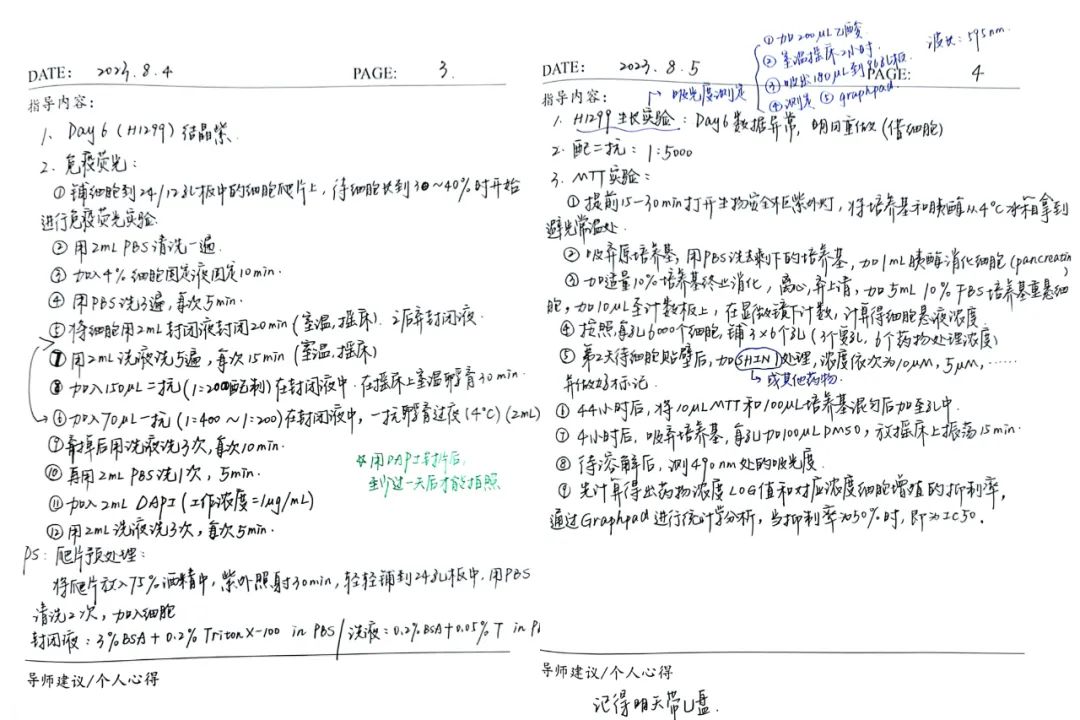 DATE: 2023.8.4 PAGE: 3.
指导内容:
1、Day6(H1299)结晶紫.
2、免疫荧光:
①铺细胞到24/12孔板中的细胞爬片上,待细胞长到30~40%时开始
进行免疫荧光实验.
②用2mL PBS清洗一遍.
③加入4%细胞固定液固定10min.
④用PBS洗3遍,每次5min.
⑤将细胞用2mL封闭液封闭20min(室温,摇床).
弃封闭液.
⑦用2mL洗液洗5遍,每次15min(室温,摇床)
⑧加入150μL二抗(1=200配制)在封闭液中.在摇床上室温孵育30min.
⑥加入70μL一抗(1=400~1=200)在封闭液中,一抗孵育过夜(4℃)(2mL)
⑨弃掉后用洗液洗3次,每次10min.
⑩再用2mL PBS洗1次,5min.
⑪加入2mL DAPI(工作浓度=1μg/mL)
⑫用2mL洗液洗3次,每次5min.
☆用DAPI封片后,
至少过一天后才能拍照
PS:爬片预处理:
将爬片放入75%酒精中,紫外照射30min,轻轻铺到24孔板中.用PBS
清洗2次,加入细胞
封闭液:3%BSA+0.2%TritonX-100 in PBS/洗液:0.2%BSA+0.05%T in P
导师建议/个人心得
①加200μL乙酸
②室温摇床2小时.
③吸出180μL到96孔板.
④测完 ⑤graphpad.
波长:595nm.
DATE: 2023.8.5 PAGE: 4
指导内容:
吸光度测定
1. H1299生长实验:Day6数据异常,明日重做(借细胞)
2. 配二抗:1:5000
3. MTT实验:
①提前15-30min打开生物安全柜紫外灯,将培养基和胰酶从4℃冰箱拿到
避光常温处.
②吸弃原培养基,用PBS洗去剩下的培养基,加1mL胰酶消化细胞(pancreatin
③加适量10%培养基终止消化,离心,弃上清,加5mL 10%FBS培养基重悬细
胞,加10μL至计数板上,在显微镜下计数,计算得细胞悬液浓度.
④按照每孔6000个细胞,铺3×6个孔(3个复孔,6个药物处理浓度)
⑤第2天待细胞贴壁后,加SHIN处理,浓度依次为10μM,5μM,……
并做好标记.
或其他药物.
⑥44小时后,将10μLMTT和100μL培养基混匀后加至孔中.
⑦4小时后,吸弃培养基,每孔加100μLDMSO,放摇床上振荡15min.
⑧待溶解后,测490nm处的吸光度.
⑨先计算得出药物浓度LOG值和对应浓度细胞增殖的抑制率,
通过Graphpad进行统计学分析,当抑制率为50%时,即为IC50.
导师建议/个人心得
记得明天带U盘.